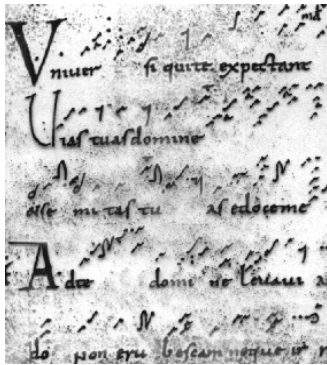 Univer si qui te expectant
Uias tuas domine
mi tas tu as edoceme
Ad te domi ne leuaui
Non eru bescam neque